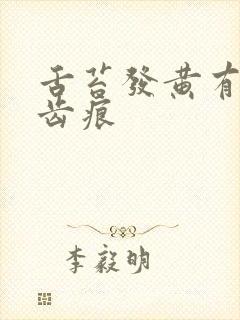 舌苔發黄有
齿痕
李毅明